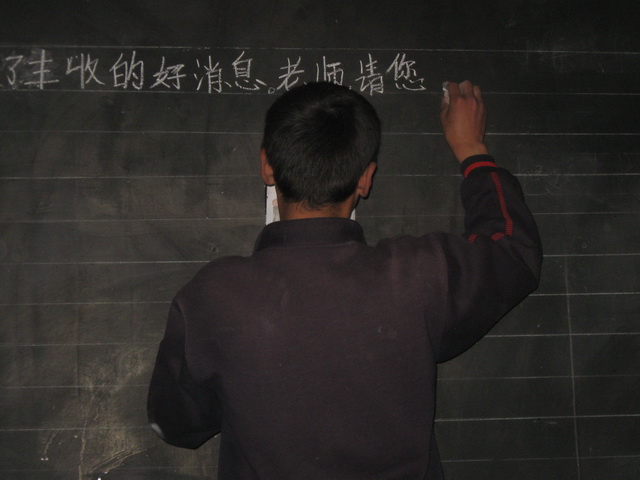 了丰收的好消息。老师,请您